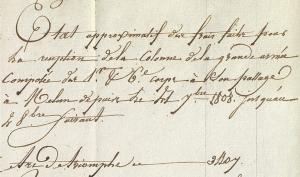 Etat approximatif des frais faits pour
la reception de la Colonne de la grande armée
Composée des 1er & 6e corps à Son passage
à Melun depuis le 7bre 1808. jusqu'au
8bre Suivant.
Arc de triomphe